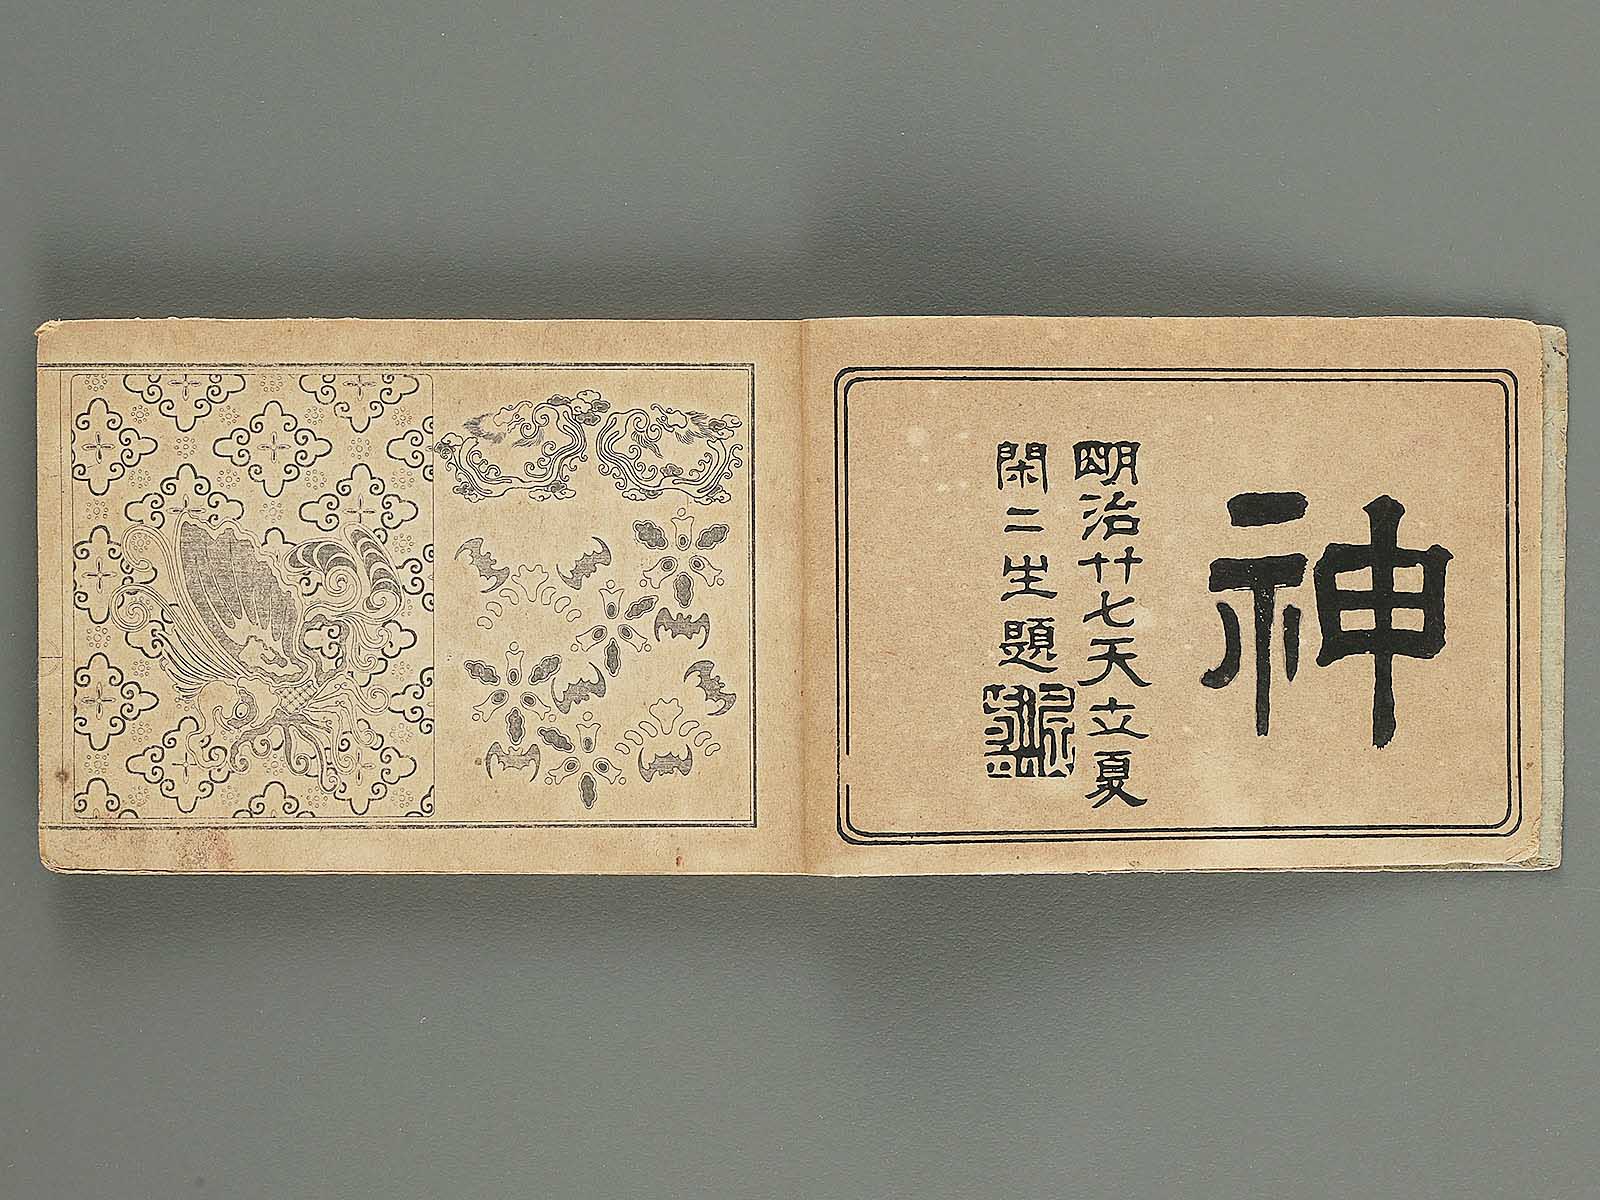 神
明治廿七天立夏
閑二生題